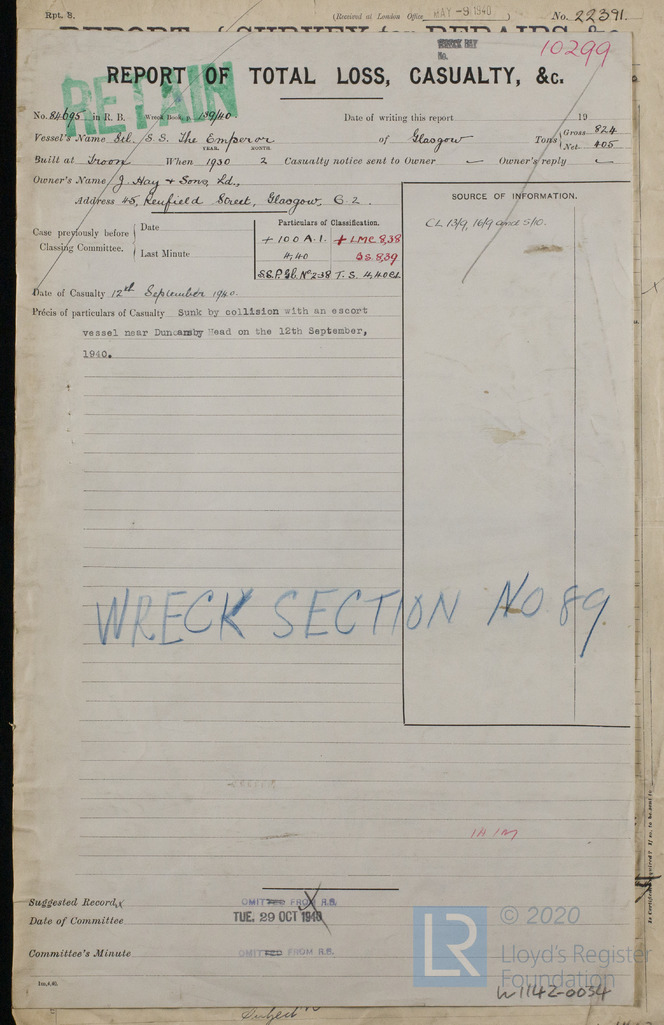 Rpt. 8. (Received at London Office MAY -9 1940 ) No. 22391.
REPORT of SURVEY for REPAIRS, &c.
WRECK BAY
No.
10299
RETAIN
REPORT OF TOTAL LOSS, CASUALTY, &c.
No. 84695 in R. B. Wreck Book, p. 189/40 Date of writing this report 19
Vessel's Name S.S. The Emperor of Glasgow Tons Gross 824
Net 405
YEAR. MONTH
Built at Troon When 1930 2 Casualty notice sent to Owner — Owner's reply —
Owner's Name J. Hay & Sons, Ld.,
Address 45, Renfield Street, Glasgow, C 2.
SOURCE OF INFORMATION.
CL 13/9, 16/9 and 5/10.
Case previously before Classing Committee.
Date
Last Minute
Particulars of Classification.
+ 100 A.1. + LMC 8,38
4,40 BS 8,39
T.S. 4,40 CL
Date of Casualty 12th September 1940.
Précis of particulars of Casualty Sunk by collision with an escort
vessel near Duncansby Head on the 12th September,
1940.
WRECK SECTION NO 89
Suggested Record, OMITTED FROM R.B.
Date of Committee TUE. 29 OCT 1940
Committee's Minute OMITTED FROM R.B.
LR © 2020
Lloyd's Register
Foundation
W1142-0054
Subject to